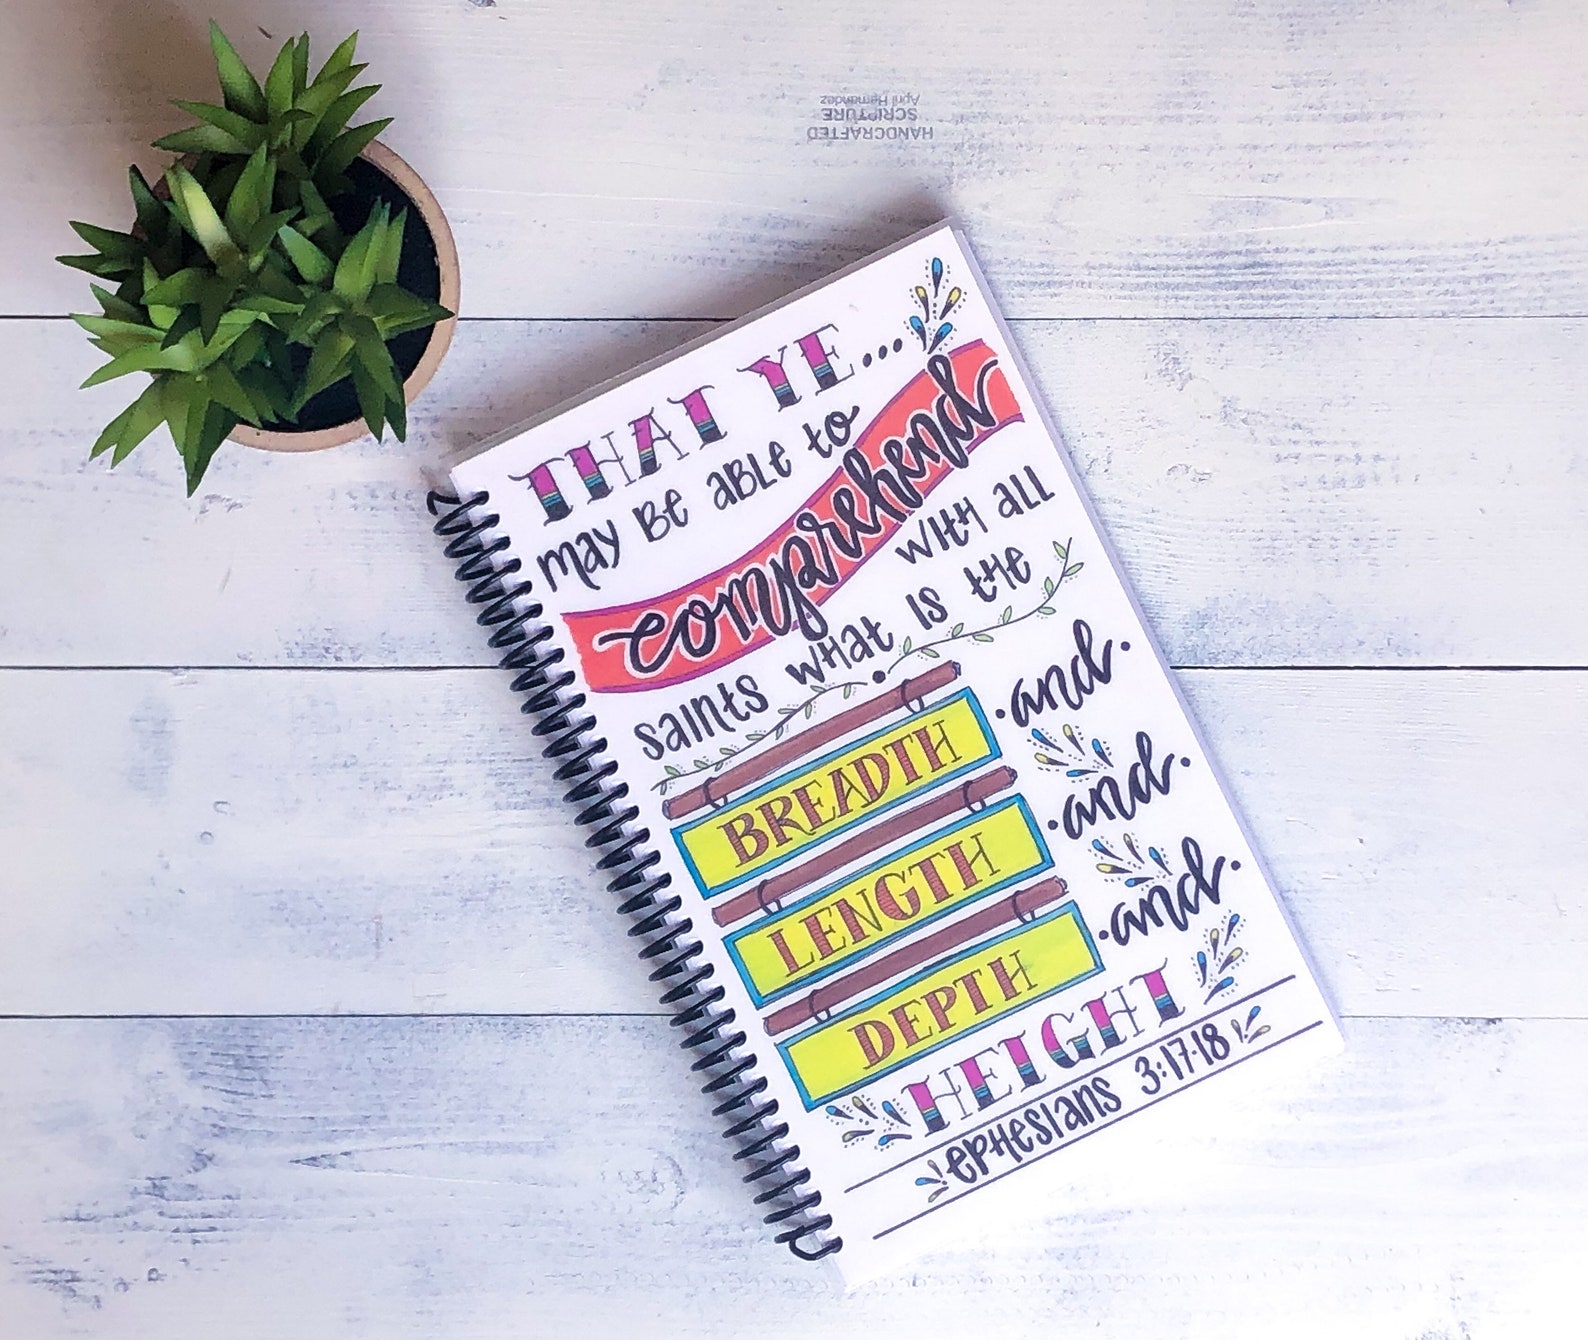 HANDCRAFTED
SCRIPTURE
April Hernandez
THAT YE...
may Be aBle to
comprehend
with all
saints what is the
BREADTH .and.
LENGTH .and.
DEPTH .and.
HEIGHT
ephesians 3:17-18